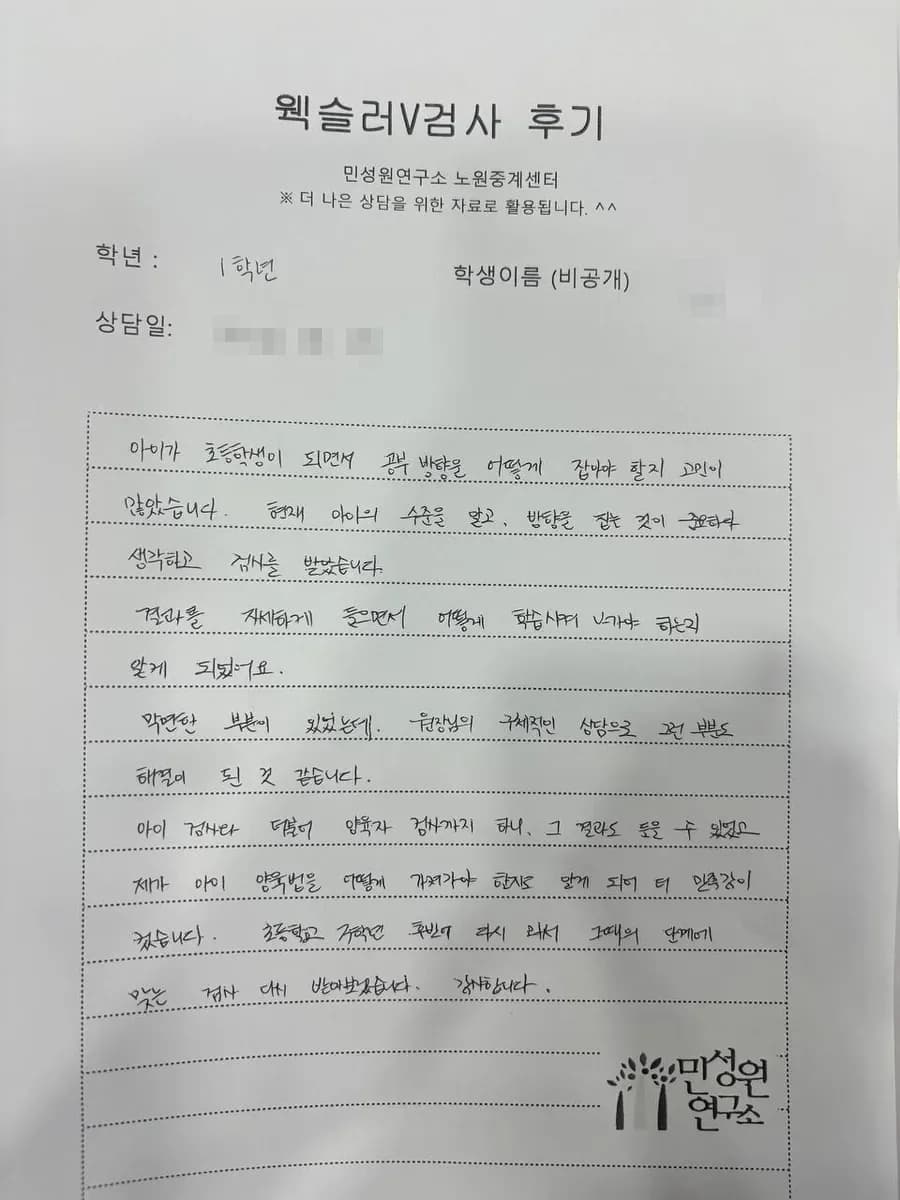 웩슬러V검사 후기
민성원연구소 노원중계센터
※ 더 나은 상담을 위한 자료로 활용됩니다. ^^
학년 : 1학년 학생이름 (비공개)
상담일:
아이가 초등학생이 되면서 공부 방향을 어떻게 잡아야 할지 고민이
많았습니다. 현재 아이의 수준을 알고, 방향을 잡는 것이 중요하다
생각하고 검사를 받았습니다.
결과를 자세하게 들으면서 어떻게 학습시켜 나가야 하는지
알게 되었어요.
막연한 부분이 있었는데, 원장님의 구체적인 상담으로 그런 부분도
해결이 된 것 같습니다.
아이 검사와 더불어 양육자 검사까지 하니, 그 결과도 들을 수 있었고
제가 아이 양육법을 어떻게 가져가야 할지도 알게 되어 더 만족감이
컸습니다. 초등학교 후반에 다시 와서 그때의 단계에
맞는 검사 다시 받아보겠습니다. 감사합니다.
민성원
연구소